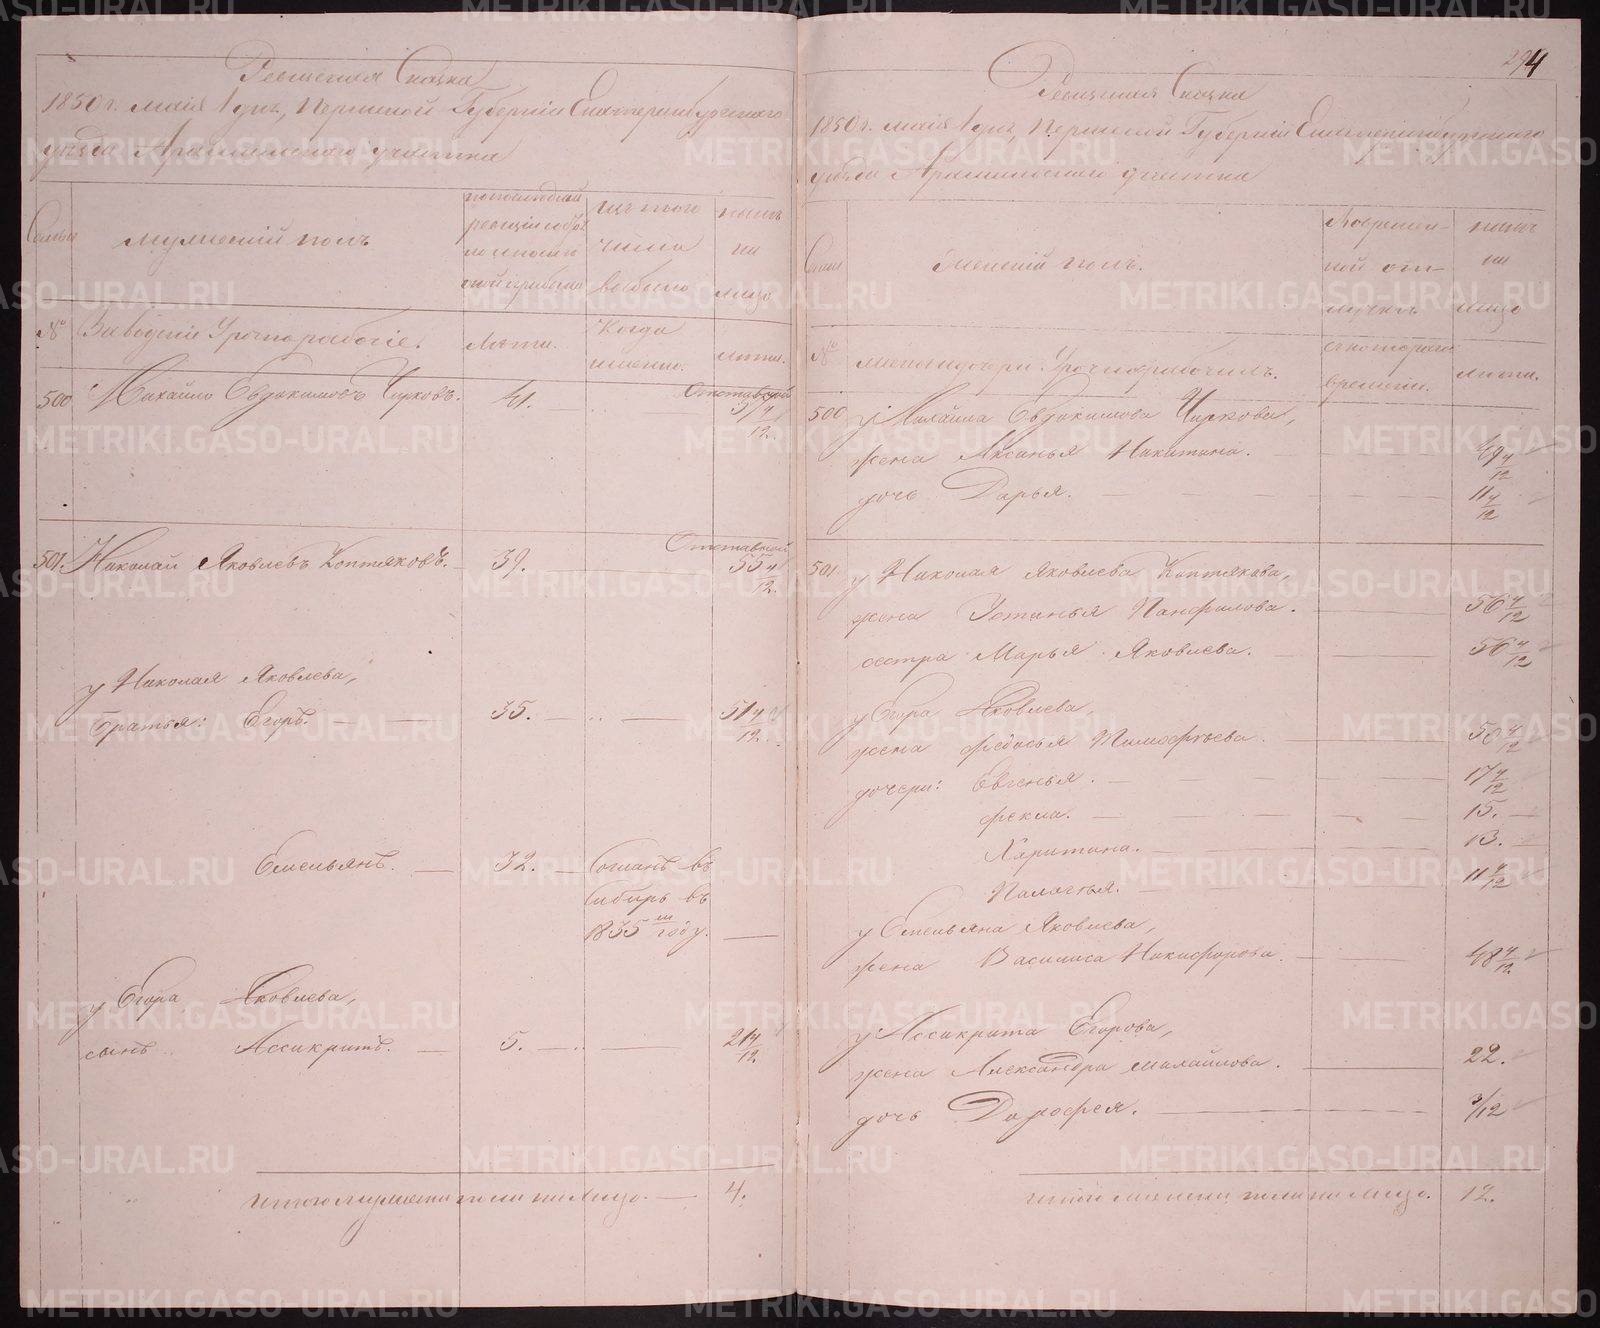 Ревизская Сказка
1850 г. маія 1 дня, Пермской Губерніи Екатеринбургскаго
уезда Арамильскаго участка
Семьи
мужескій полъ
по последней
ревизіи
изъ того
числа
выбыло
ныне
на
лицо
№
Заводскіе Урочнорабочіе.
Лета.
Когда
именно.
лета.
500 Михайло Евдокимовъ Чирковъ. 41.
Отставной
57 4/12
501. Николай Яковлевъ Коптяковъ. 39.
Отставной
55 4/12
у Николая Яковлева,
братья: Егоръ. 35. 51 4/12
Емельянъ. 32. Сосланъ въ
Сибирь въ
1835 м году.
у Егора Яковлева,
сынъ Ассикритъ. 5. 21 4/12
итого мужеска пола на лицо. 4.
294
Ревизская Сказка
1850 г. маія 1 дня, Пермской Губерніи Екатеринбургскаго
уезда Арамильскаго участка
Семьи
женскій полъ.
Во временной
отлучке
ныне
на
лицо
№
жены и дочери Урочнорабочихъ.
съ котораго
времени.
лета.
500 у Михайла Евдокимова Чиркова,
жена Аксинья Никитина. 49 4/12
дочь Дарья. 11 4/12
501 у Николая Яковлева Коптякова,
жена Устинья Панфилова. 56 4/12
сестра Марья Яковлева. 56 4/12
у Егора Яковлева,
жена Федосья Тимофеева. 50 4/12
дочери: Евгенья. 17 4/12
Фекла. 15.
Харитина. 13.
Палагья. 11 4/12
у Емельяна Яковлева,
жена Василиса Никифорова. 48 4/12
у Ассикрита Егорова,
жена Александра Михайлова. 22.
дочь Дорофея. 3/12
итого женска пола на лицо. 12.
METRIKI.GASO-URAL.RU